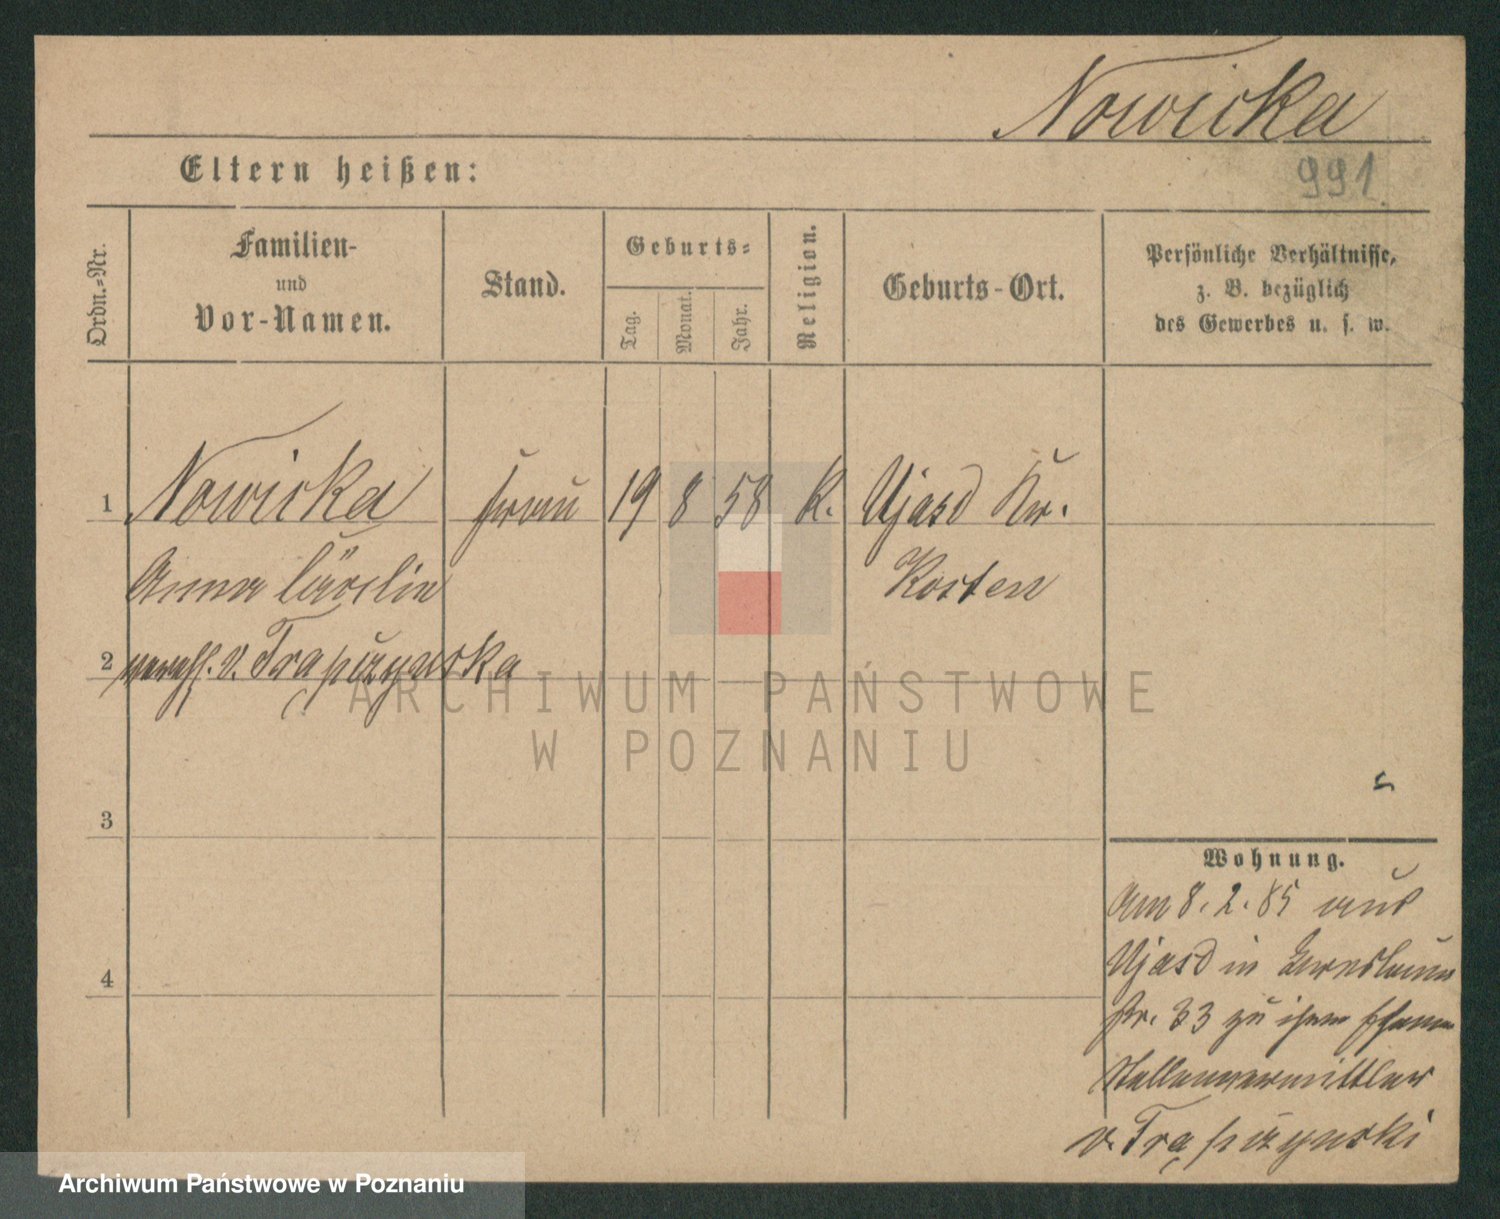 Nowicka
991.
Eltern heißen:
Ordn.-Nr.
Familien-
und
Vor-Namen.
Stand.
Geburts-
Tag.
Monat.
Jahr.
Religion.
Geburts-Ort.
Persönliche Verhältnisse,
z. B. bezüglich
des Gewerbes u. s. w.
1 Nowicka Frau 19 8 58 K. Ujasd Kr.
Anna Kosten
2 v. Trąpczynska
3
4
Wohnung.
am 8. 2. 85 aus
Ujasd in
str. 33 zu ihrem Ehemann
Stellenvermittler
v. Trąpczynski
ARCHIWUM PAŃSTWOWE
W POZNANIU
Archiwum Państwowe w Poznaniu